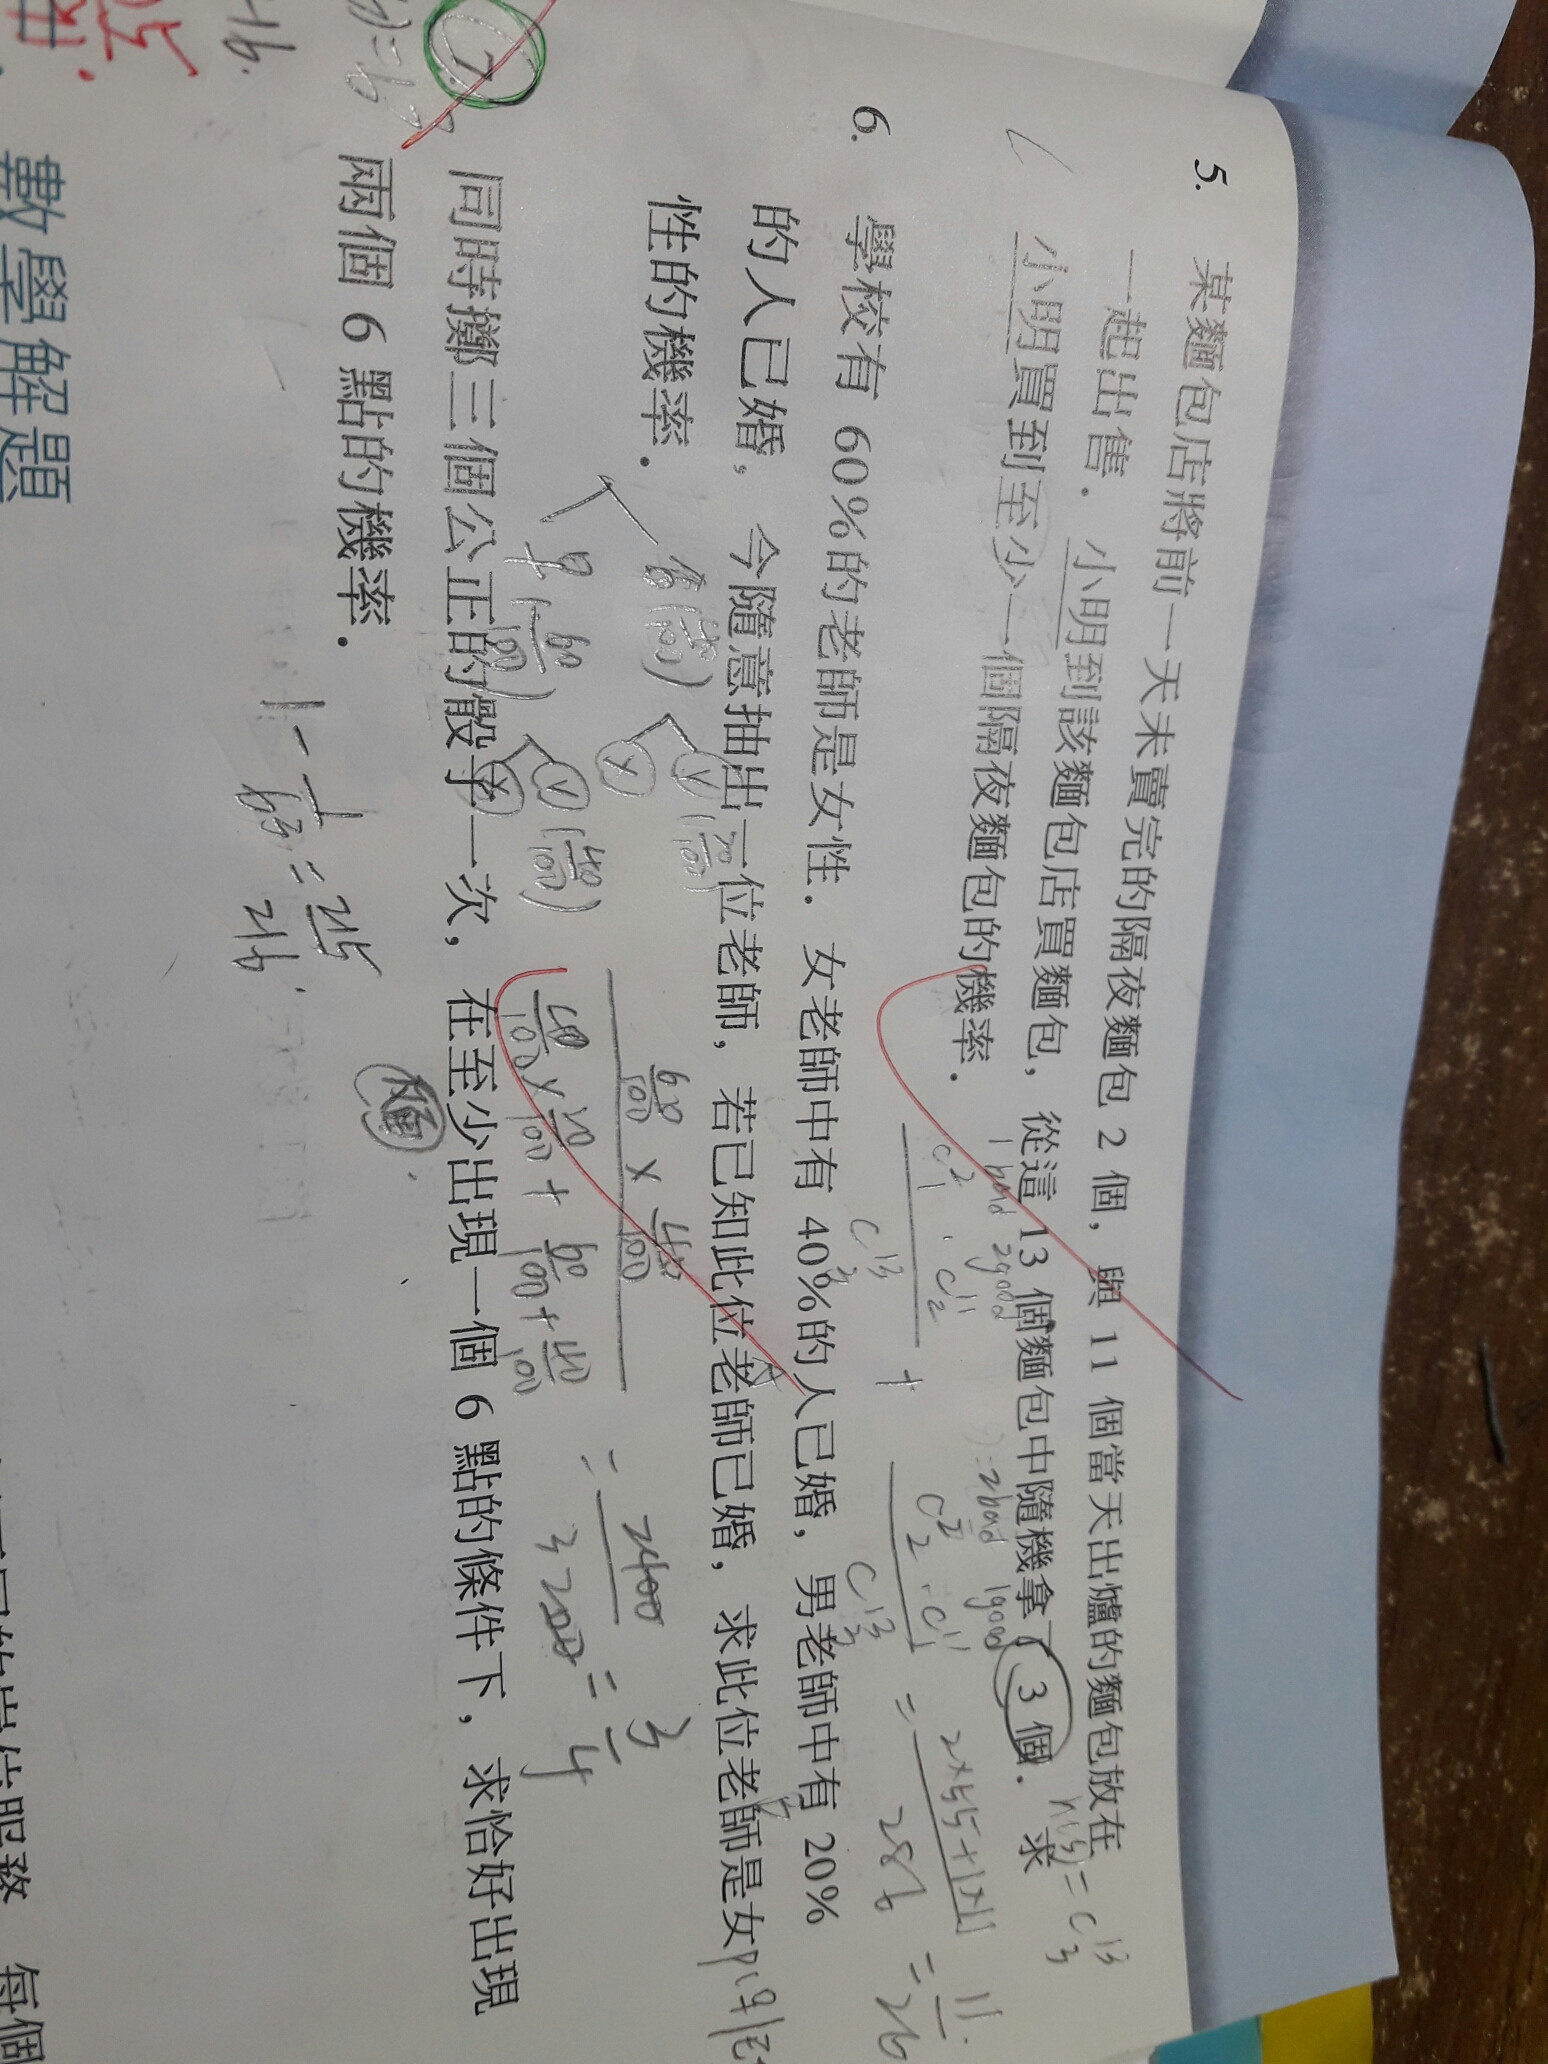 5. 某麵包店將前一天未賣完的隔夜麵包 2 個，與 11 個當天出爐的麵包放在
一起出售．小明到該麵包店買麵包，從這 13 個麵包中隨機拿了 3 個．求
小明買到至少一個隔夜麵包的機率．
n(S) = C¹³₃
1bad 2good
2bad 1good
C²₁·C¹¹₂ / C¹³₃ + C²₂·C¹¹₁ / C¹³₃ = (2×55+1×11) / 286 = 11 / 26
6. 學校有 60%的老師是女性．女老師中有 40%的人已婚，男老師中有 20%
的人已婚，今隨意抽出一位老師，若已知此位老師已婚，求此位老師是女
性的機率．
男 (40/100) V (20/100)
X
女 (60/100) V (40/100)
X
60/100 × 40/100
40/100 × 20/100 + 60/100 + 40/100
= 2400 / 3200 = 3 / 4
7. 同時擲三個公正的骰子一次，在至少出現一個 6 點的條件下，求恰好出現
兩個 6 點的機率．
1 - 1 / 63 = 215 / 216
數學解題